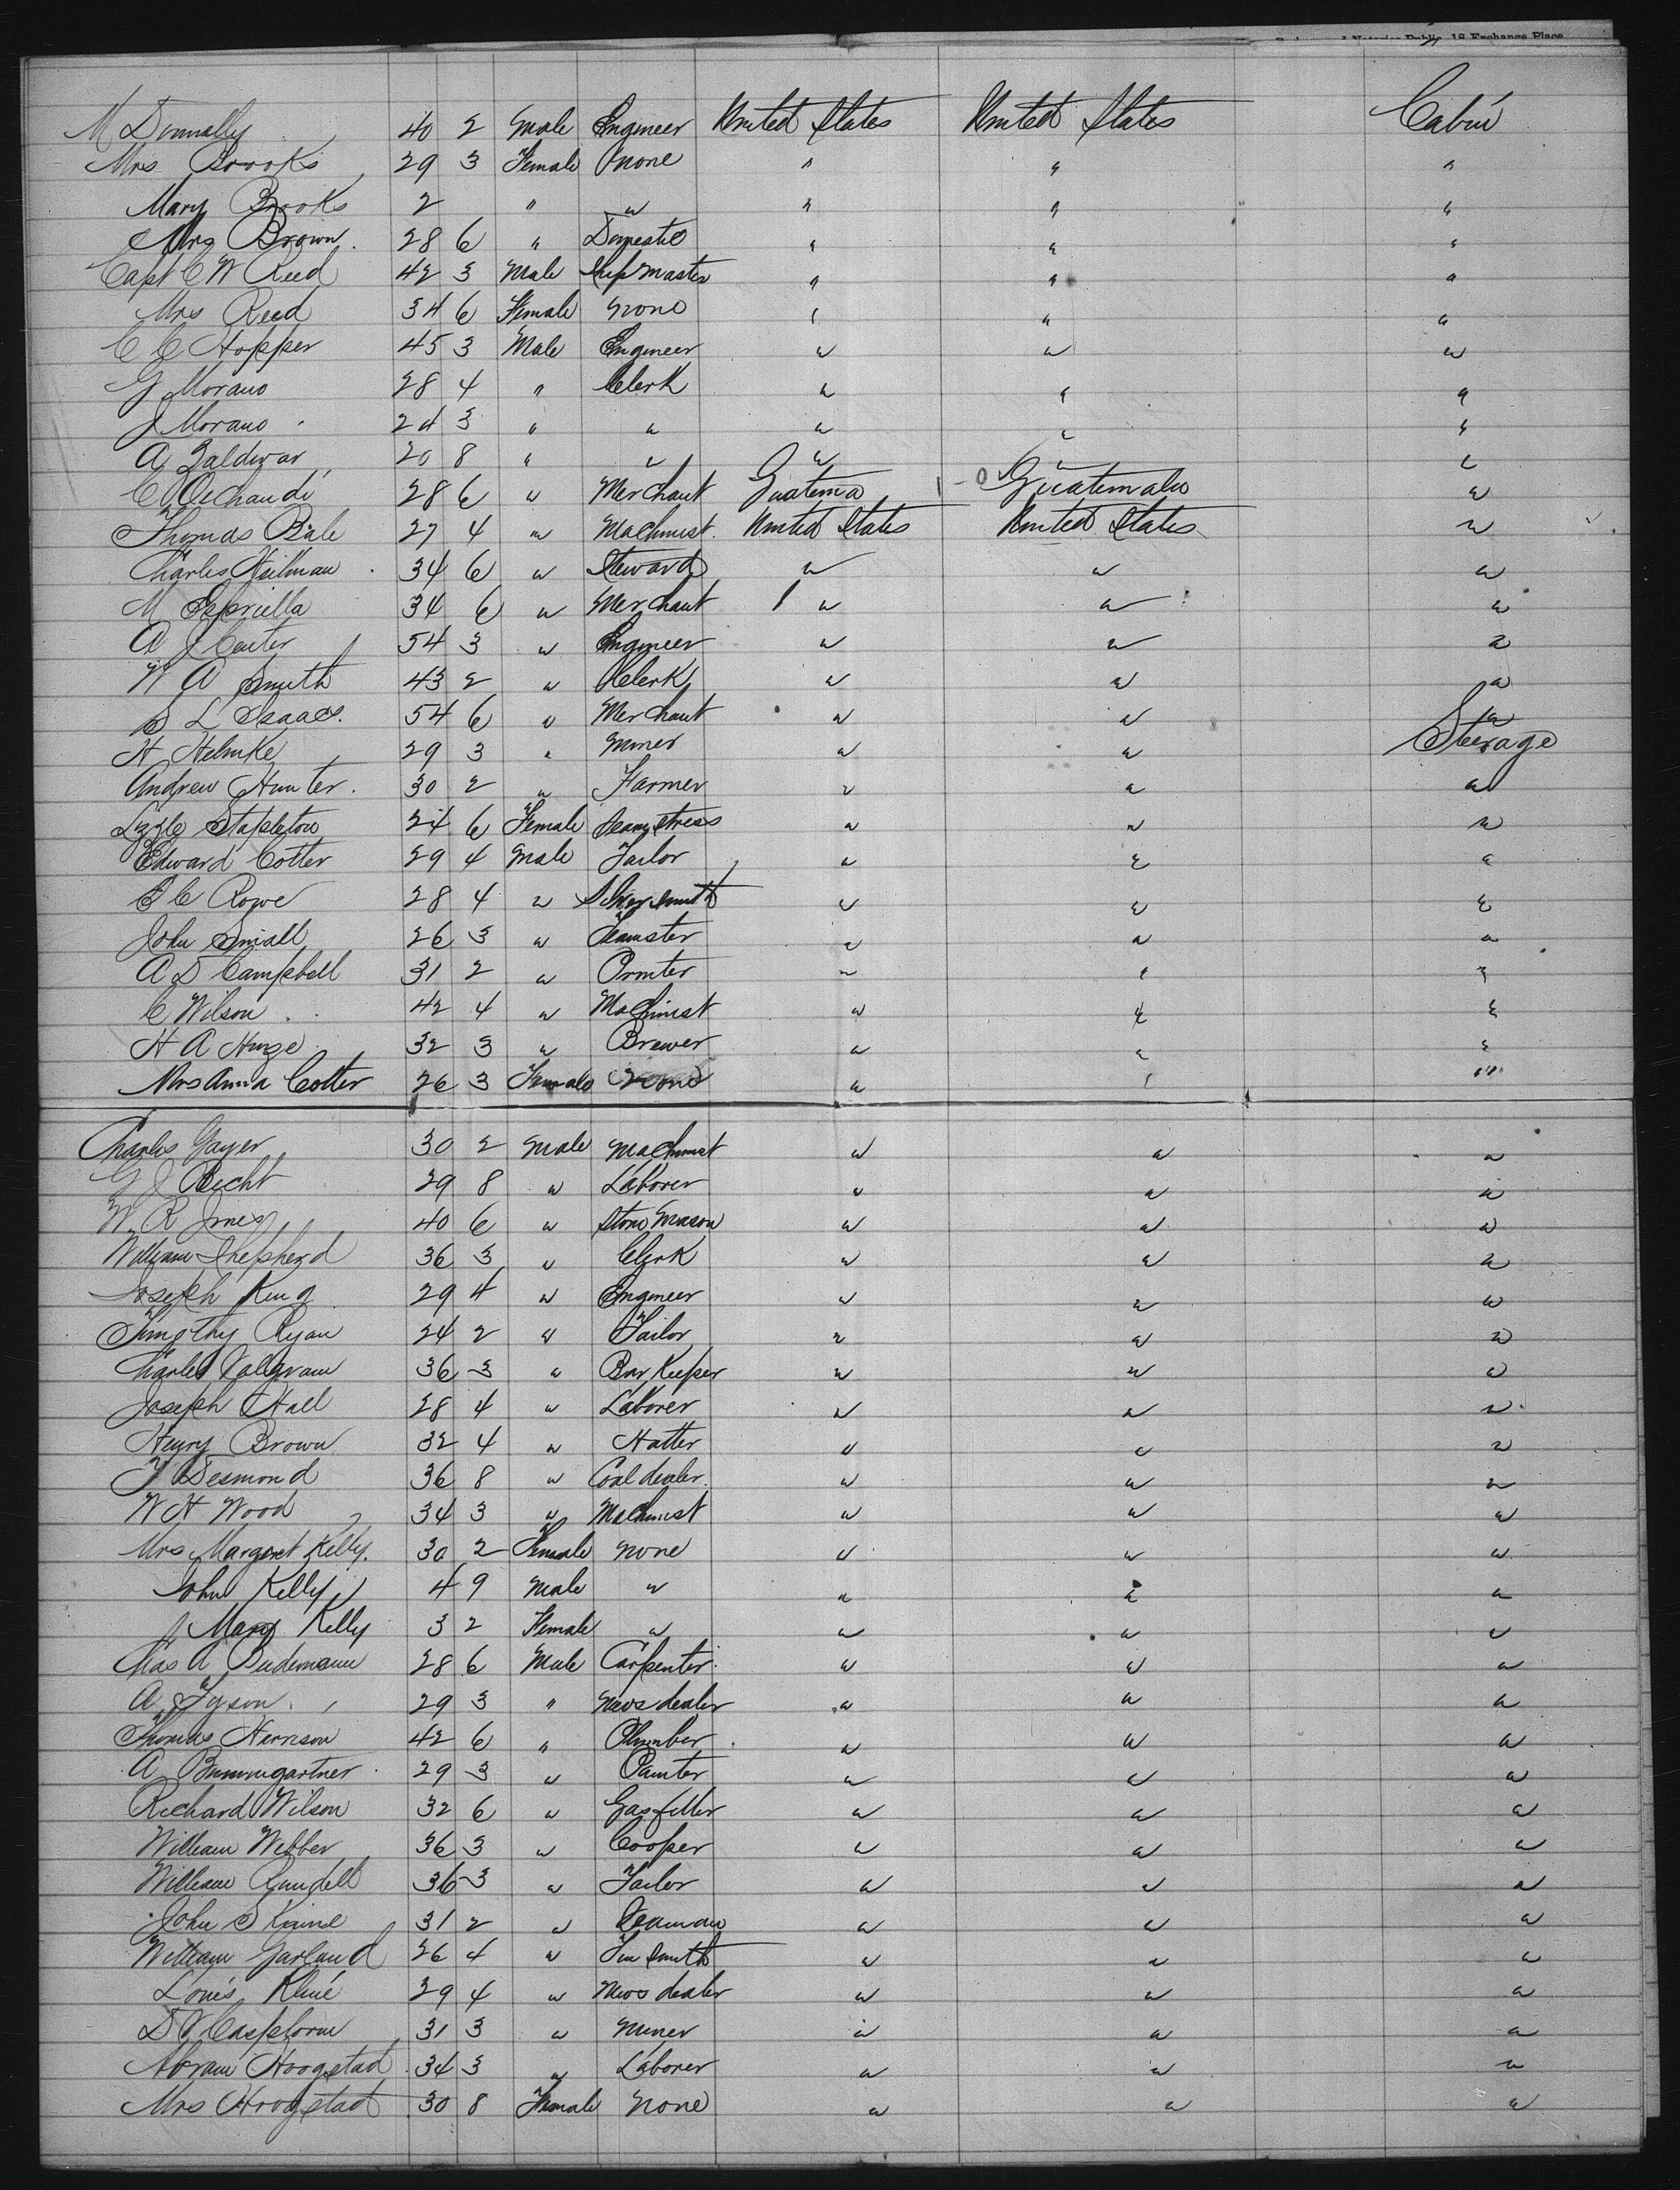 18 Exchange Place
M Donnally 40 2 Male Engineer United States United States Cabin
Mrs Brooks 29 3 Female None " " "
Mary Brooks 2 " " " " "
Mrs Brown 28 6 " Domestic " " "
Capt C W Reed 42 3 Male Ship Master " " "
Mrs Reed 34 6 Female None " " "
C C Hopper 45 3 Male Engineer " " "
G Morano 28 4 " Clerk " " "
J Morano 24 3 " " " " "
A Zaldivar 20 8 " " " " "
C 28 6 " Merchant Guatema Guatemala "
Thomas Bale 27 4 " Machinist United States United States "
Charles Heilman 34 6 " Steward " " "
M 34 6 " Merchant " " "
A J Carter 54 3 " Engineer " " "
W A Smith 43 2 " Clerk " " "
S L Isaacs 54 6 " Merchant " " "
H Helmke 29 3 " Miner " " Steerage
Andrew Hunter 30 2 " Farmer " " "
Lizzie Stapleton 24 6 Female Seamstress " " "
Edward Cotter 29 4 Male Tailor " " "
C Rowe 28 4 " Silversmith " " "
John Small 26 3 " Teamster " " "
A D Campbell 31 2 " Printer " " "
C Wilson 42 4 " Machinist " " "
H A Hinze 32 3 " Brewer " " "
Mrs Anna Cotter 26 3 Female None " " "
Charles Gayer 30 2 Male Machinist " " "
G J Becht 29 8 " Laborer " " "
W R Jones 40 6 " Stone Mason " " "
William Shepherd 36 3 " Clerk " " "
Joseph King 29 4 " Engineer " " "
Timothy Ryan 24 2 " Tailor " " "
Charles 36 3 " Bar Keeper " " "
Joseph Hall 28 4 " Laborer " " "
Henry Brown 32 4 " Hatter " " "
T Desmond 36 8 " Coal dealer " " "
W H Wood 34 3 " Machinist " " "
Mrs Margret Kelly 30 2 Female None " " "
John Kelly 4 9 Male " " " "
Mary Kelly 3 2 Female " " " "
Chas A 28 6 Male Carpenter " " "
A Tyson 29 3 " News dealer " " "
Thomas Harrison 42 6 " Plumber " " "
A Bummgartner 29 3 " Painter " " "
Richard Wilson 32 6 " Gasfitter " " "
William Webber 36 3 " Cooper " " "
William Rundell 36 3 " Tailor " " "
John S 31 2 " Seaman " " "
William Garland 26 4 " Tin Smith " " "
Louis Kline 29 4 " News dealer " " "
D 31 3 " Miner " " "
Abram Hoogstad 34 3 " Laborer " " "
Mrs Hoogstad 30 8 Female None " " "